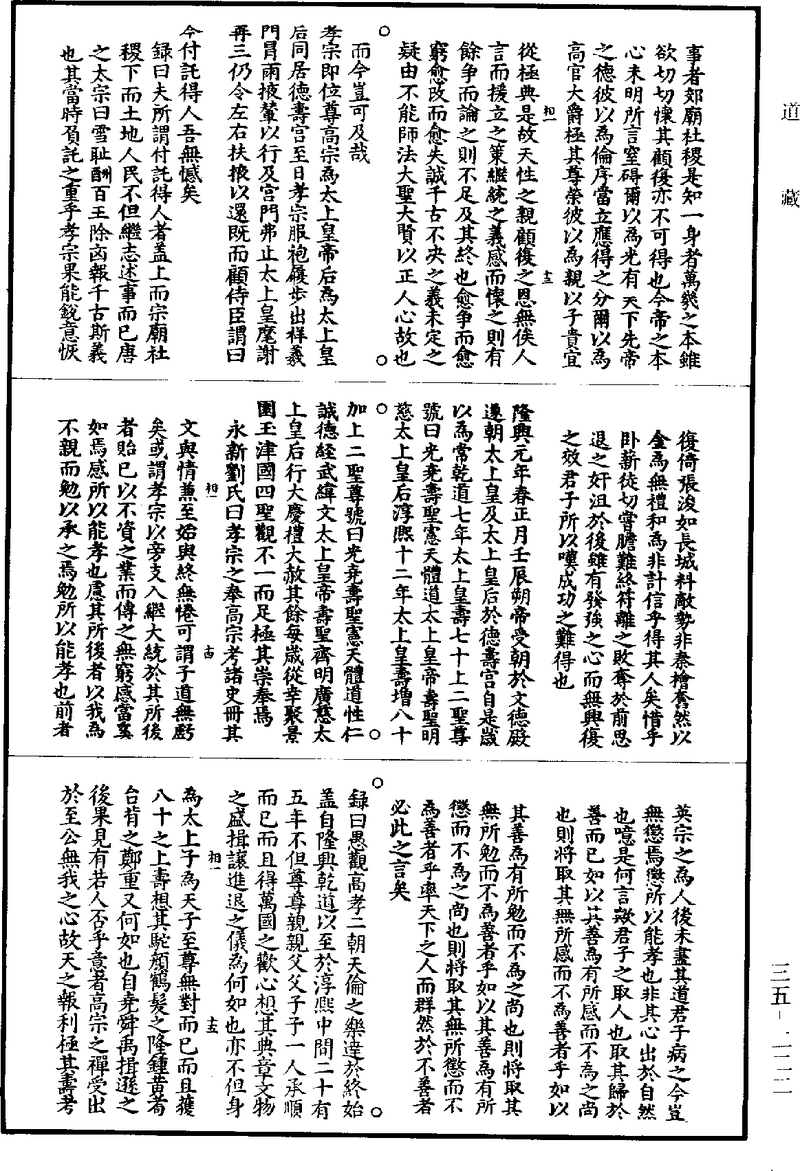 道藏
事者郊廟社稷是知一身者萬幾之本雖
欲切切懷其顧復亦不可得也今帝之本
心未明所言窒碍爾以為光有天下先帝
之德彼以為倫序當立應得之分爾以為
高官大爵極其尊榮彼以為親以子貴宜
從極典是故天性之親顧復之恩無俟人
言而援立之策繼統之義感而懷之則有
餘爭而論之則不足及其終也愈爭而愈
窮愈改而愈失誠千古不決之義未定之
疑由不能師法大聖大賢以正人心故也
而今豈可及哉
孝宗即位尊高宗為太上皇帝后為太上皇
后同居德壽宮至日孝宗服袍履步出祥羲
門冒雨掖輦以行及宮門弗止太上皇麾謝
再三仍令左右扶掖以還既而顧侍臣謂曰
今付託得人吾無憾矣
録曰夫所謂付託得人者蓋上而宗廟社
稷下而土地人民不但繼志述事而已唐
之太宗曰雪耻酬百王除凶報千古斯義
也其當時負託之重乎孝宗果能銳意恢
復倚張浚如長城料敵勢非秦檜奮然以
金為無禮和為非計信乎得其人矣惜乎
卧薪徒切嘗膽難終符離之敗奪於前思
退之奸沮於後雖有發強之心而無興復
之效君子所以嘆成功之難得也
隆興元年春正月壬辰朔帝受朝於文德殿
遂朝太上皇及太上皇后於德壽宮自是歲
以為常乾道七年太上皇壽七十上二聖尊
號曰光堯壽聖憲天體道太上皇帝壽聖明
慈太上皇后淳熙十二年太上皇壽增八十
加上二聖尊號曰光堯壽聖憲天體道性仁
誠德經武緯文太上皇帝壽聖齊明廣慈太
上皇后行大慶禮大赦其餘每歲從幸聚景
園玉津國四聖觀不一而足極其崇奉焉
永新劉氏曰孝宗之奉高宗考諸史冊其
文與情兼至始與終無倦可謂子道無虧
矣或謂孝宗以旁支入繼大統於其所後
者貽已以不資之業而傳之無窮感當奚
如焉感所以能孝也慮其所後者以我為
不親而勉以承之焉勉所以能孝也前者
英宗之為人後未盡其道君子病之今豈
無懲焉懲所以能孝也非其心出於自然
也噫是何言歟君子之取人也取其歸於
善而已如以其善為有所感而不為之尚
也則將取其無所感而不為善者乎如以
其善為有所勉而不為之尚也則將取其
無所勉而不為善者乎如以其善為有所
懲而不為之尚也則將取其無所懲而不
為善者乎率天下之人而群然於不善者
必此之言矣
録曰愚觀高孝二朝天倫之樂達於終始
蓋自隆興乾道以至於淳熙中間二十有
五年不但尊尊親親父父子子一人承順
而已而且得萬國之歡心想其典章文物
之盛揖讓進退之儀為何如也亦不但身
為太上子為天子至尊無對而已而且獲
八十之上壽想其駝顏鶴髮之隆鍾黃耇
台背之鄭重又何如也自堯舜禹揖遜之
後果見有若人否乎意者高宗之禪受出
於至公無我之心故天之報利極其壽考
三五－二二二